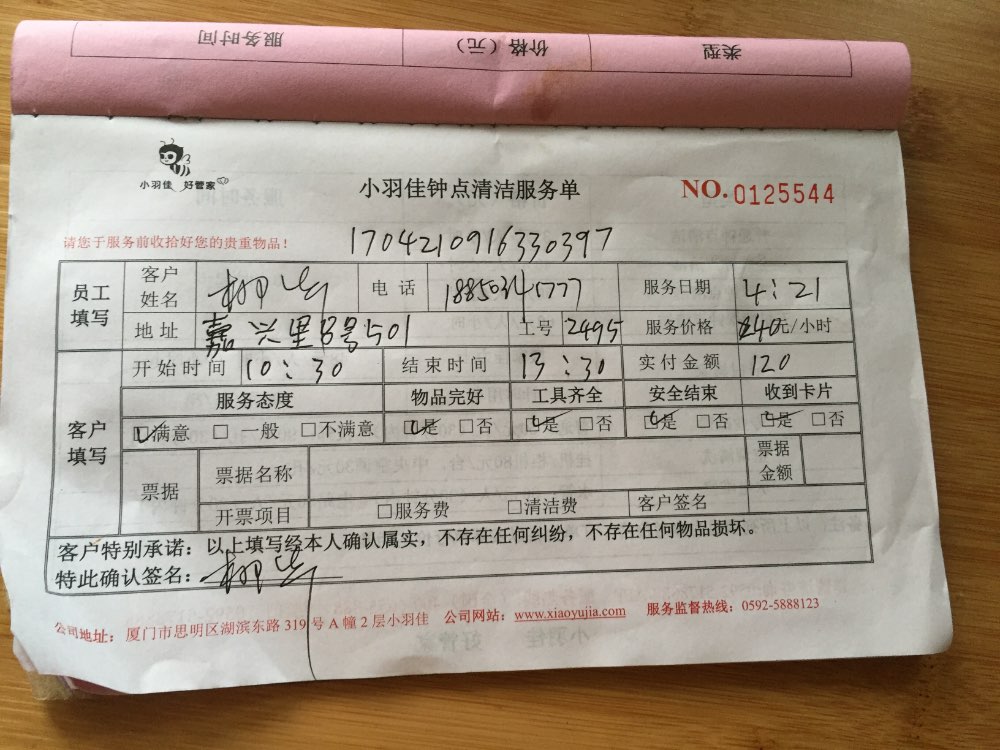 服务时间 价格（元） 类型
小羽佳 好管家
小羽佳钟点清洁服务单
NO. 0125544
请您于服务前收拾好您的贵重物品！
1704210916330397
员工填写 客户姓名 电话 服务日期 4:21
地址 嘉兴里8号501 工号 2495 服务价格 40元/小时
客户填写 开始时间 10:30 结束时间 13:30 实付金额 120
服务态度 物品完好 工具齐全 安全结束 收到卡片
☑满意 □一般 □不满意 ☑是 □否 ☑是 □否 ☑是 □否 ☑是 □否
票据 票据名称 票据金额
开票项目 □服务费 □清洁费 客户签名
客户特别承诺：以上填写经本人确认属实，不存在任何纠纷，不存在任何物品损坏。
特此确认签名：
公司地址：厦门市思明区湖滨东路319号A幢2层小羽佳 公司网站：www.xiaoyujia.com 服务监督热线：0592-5888123